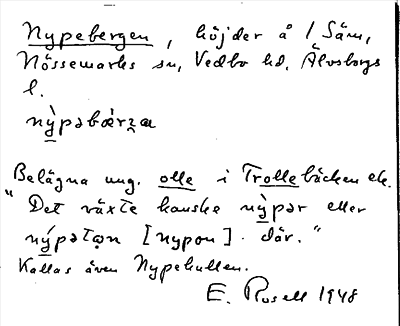 Nypebergen, höjder å 1 Säm,
Nössemarks sn, Vedbo hd. Älvsborgs
l.
nỳpəbær̥ʒa
Belägna ung. olle i Trollebäcken ek.
"Det växte kanske nỳpər eller
nýpətǫn [nypon] där."
Kallas även Nypekullen.
E. Rosell 1948